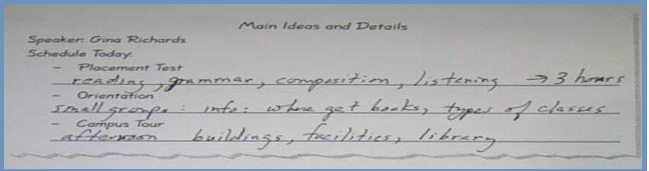 Main Ideas and Details
Speaker: Gina Richards
Schedule Today:
- Placement Test
reading, grammar, composition, listening → 3 hours
- Orientation
small groups: info: where get books, types of classes
- Campus Tour
afternoon buildings, facilities, library